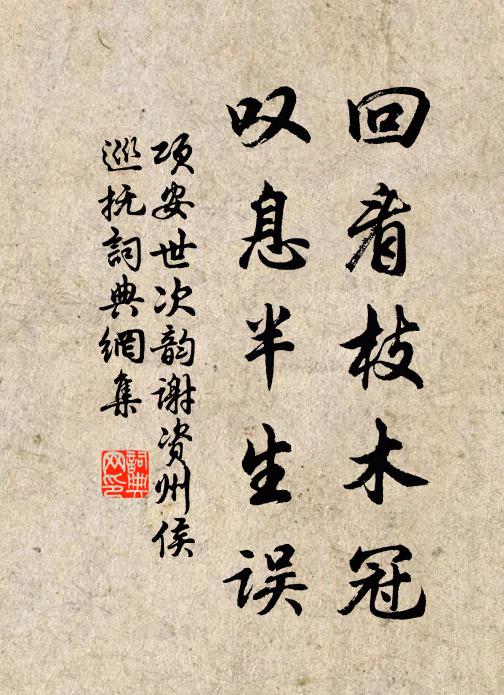 回看枝木冠
叹息半生误
项安世次韵谢资州侯
巡抚詞典網集
詞典
网印